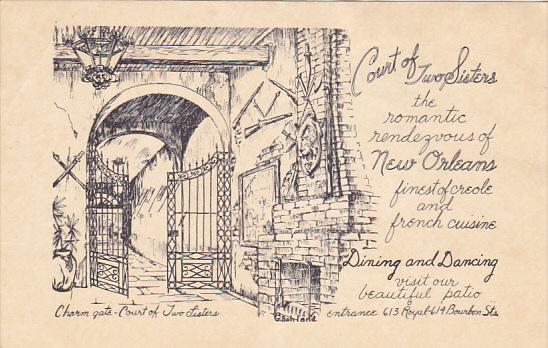 Court of
Two Sisters
the
romantic
rendezvous of
New Orleans
finest of creole
and
french cuisine
Dining and Dancing
visit our
beautiful patio
entrance 613 Royal-614 Bourbon Sts.
Charm gate - Court of Two Sisters